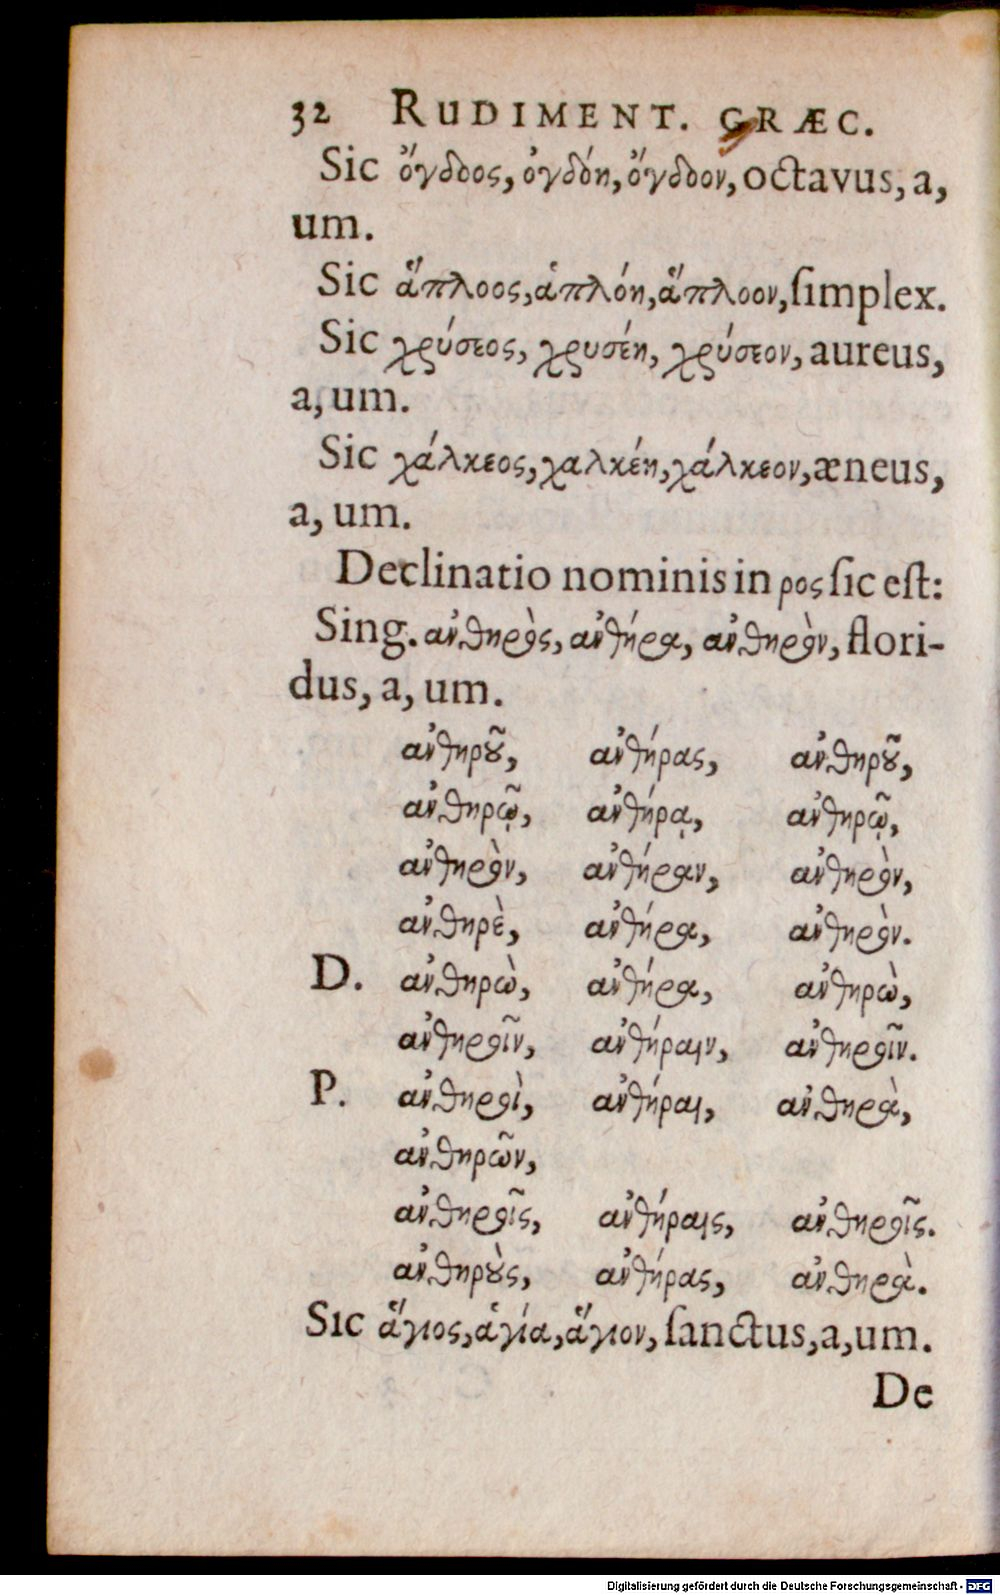 32 RUDIMENT. GRÆC.
Sic ὄγδοος, ὀγδόη, ὄγδοον, octavus, a,
um.
Sic ἅπλοος, ἁπλόη, ἅπλοον, ſimplex.
Sic χρύσεος, χρυσέη, χρύσεον, aureus,
a, um.
Sic χάλκεος, χαλκέη, χάλκεον, æneus,
a, um.
Declinatio nominis in ρος ſic eſt:
Sing. ἀνθηρὸς, ἀνθήρα, ἀνθηρὸν, flori-
dus, a, um.
ἀνθηροῦ, ἀνθήρας, ἀνθηροῦ,
ἀνθηρῷ, ἀνθήρᾳ, ἀνθηρῷ,
ἀνθηρὸν, ἀνθήραν, ἀνθηρὸν,
ἀνθηρὲ, ἀνθήρα, ἀνθηρὸν.
D. ἀνθηρὼ, ἀνθήρα, ἀνθηρὼ,
ἀνθηροῖν, ἀνθήραιν, ἀνθηροῖν.
P. ἀνθηροὶ, ἀνθήραι, ἀνθηρὰ,
ἀνθηρῶν,
ἀνθηροῖς, ἀνθήραις, ἀνθηροῖς.
ἀνθηροὺς, ἀνθήρας, ἀνθηρὰ.
Sic ἅγιος, ἁγία, ἅγιον, ſanctus, a, um.
De
Digitalisierung gefördert durch die Deutsche Forschungsgemeinschaft - DFG